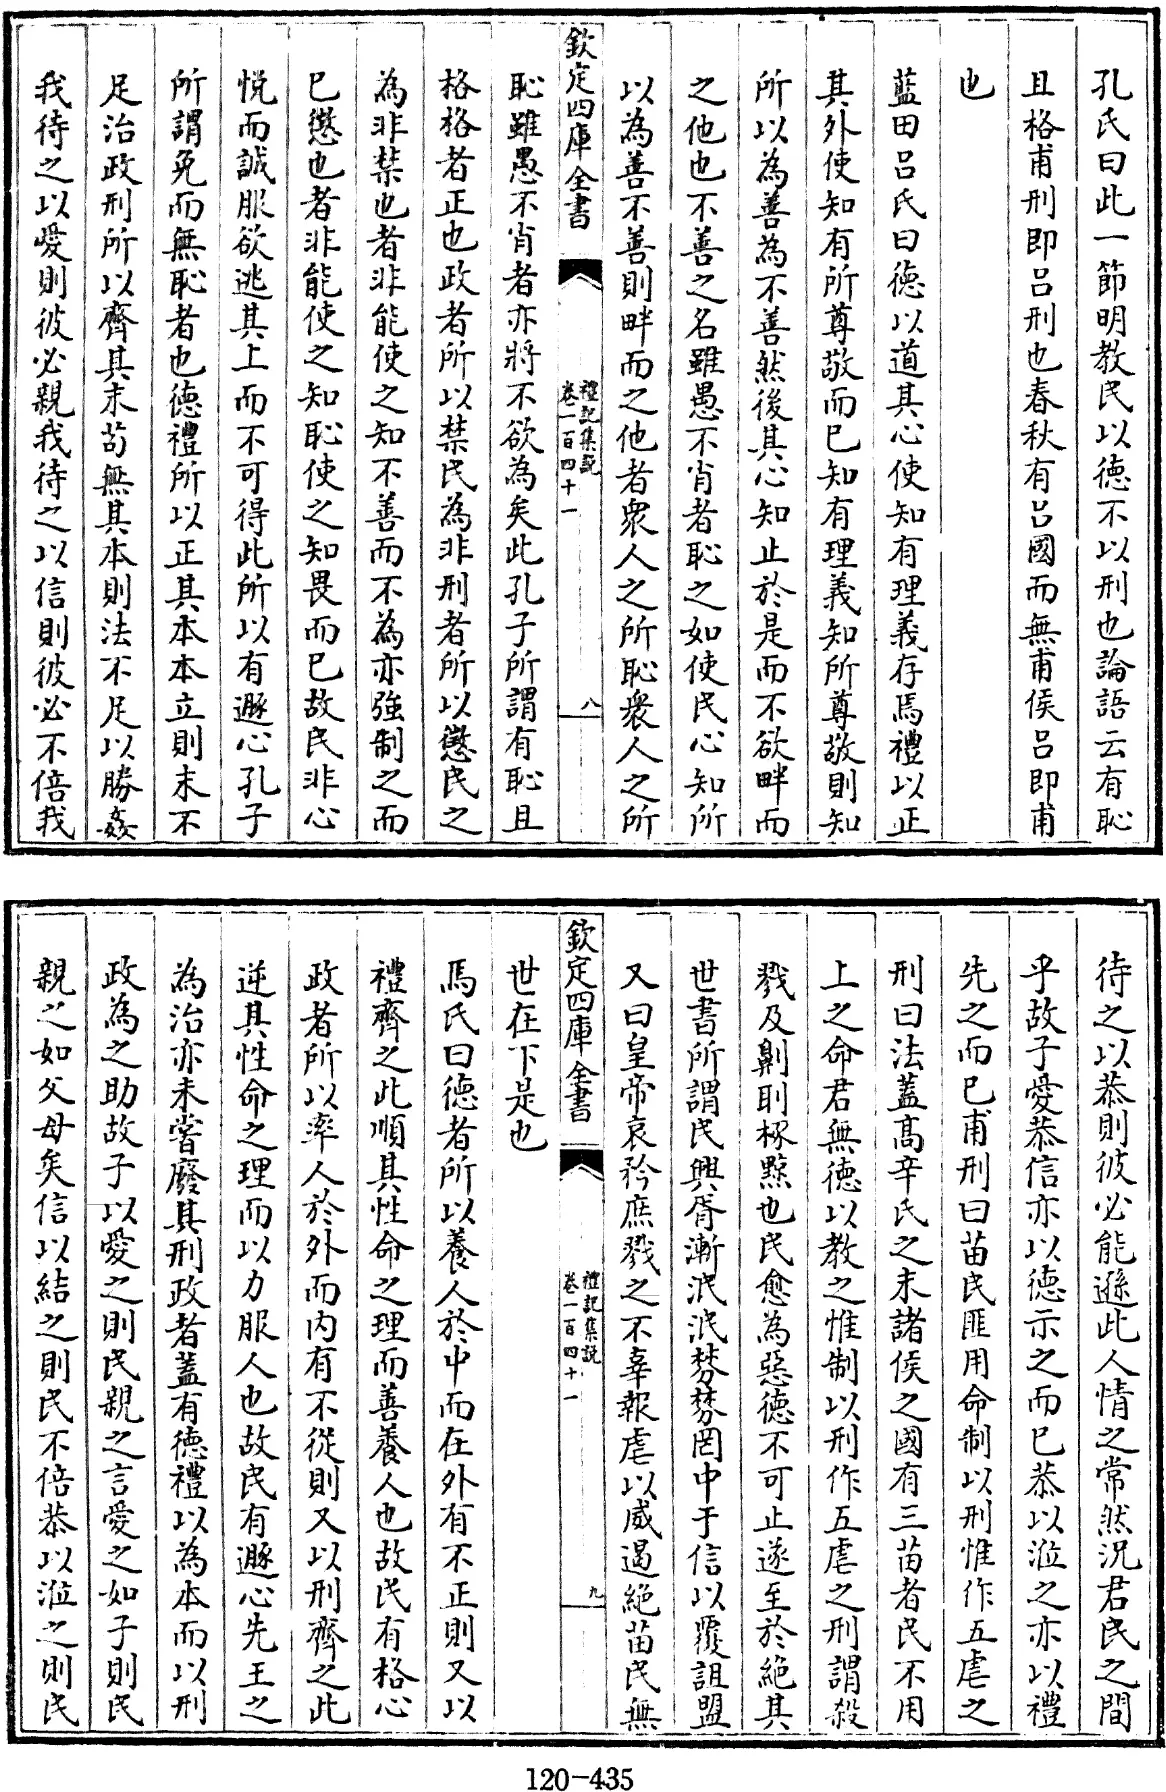 孔氏曰此一節明教民以德不以刑也論語云有恥
且格甫刑即吕刑也春秋有吕國而無甫侯吕即甫
也
藍田吕氏曰德以道其心使知有理義存焉禮以正
其外使知有所尊敬而已知有理義知所尊敬則知
所以為善為不善然後其心知止於是而不欲畔而
之他也不善之名雖愚不肖者恥之如使民心知所
以為善不善則畔而之他者衆人之所恥衆人之所
欽定四庫全書
禮記集説
卷一百四十一
八
恥雖愚不肖者亦將不欲為矣此孔子所謂有恥且
格格者正也政者所以禁民為非刑者所以懲民之
為非禁也者非能使之知不善而不為亦強制之而
已懲也者非能使之知恥使之知畏而已故民非心
悦而誠服欲逃其上而不可得此所以有遯心孔子
所謂免而無恥者也德禮所以正其本本立則末不
足治政刑所以齊其末茍無其本則法不足以勝姦
我待之以愛則彼必親我待之以信則彼必不倍我
待之以恭則彼必能遜此人情之常然況君民之間
乎故子愛恭信亦以德示之而已恭以涖之亦以禮
先之而已甫刑曰苗民匪用命制以刑惟作五虐之
刑曰法蓋髙辛氏之末諸侯之國有三苗者民不用
上之命君無德以教之惟制以刑作五虐之刑謂殺
戮及劓刵椓黥也民愈為惡德不可止遂至於絶其
世書所謂民興胥漸泯泯棼棼罔中于信以覆詛盟
又曰皇帝哀矜庶戮之不辜報虐以威遏絶苗民無
欽定四庫全書
禮記集説
卷一百四十一
九
世在下是也
馬氏曰德者所以養人於中而在外有不正則又以
禮齊之此順其性命之理而善養人也故民有格心
政者所以率人於外而内有不從則又以刑齊之此
逆其性命之理而以力服人也故民有遯心先王之
為治亦未嘗廢其刑政者蓋有德禮以為本而以刑
政為之助故子以愛之則民親之言愛之如子則民
親之如父母矣信以結之則民不倍恭以涖之則民
120-435